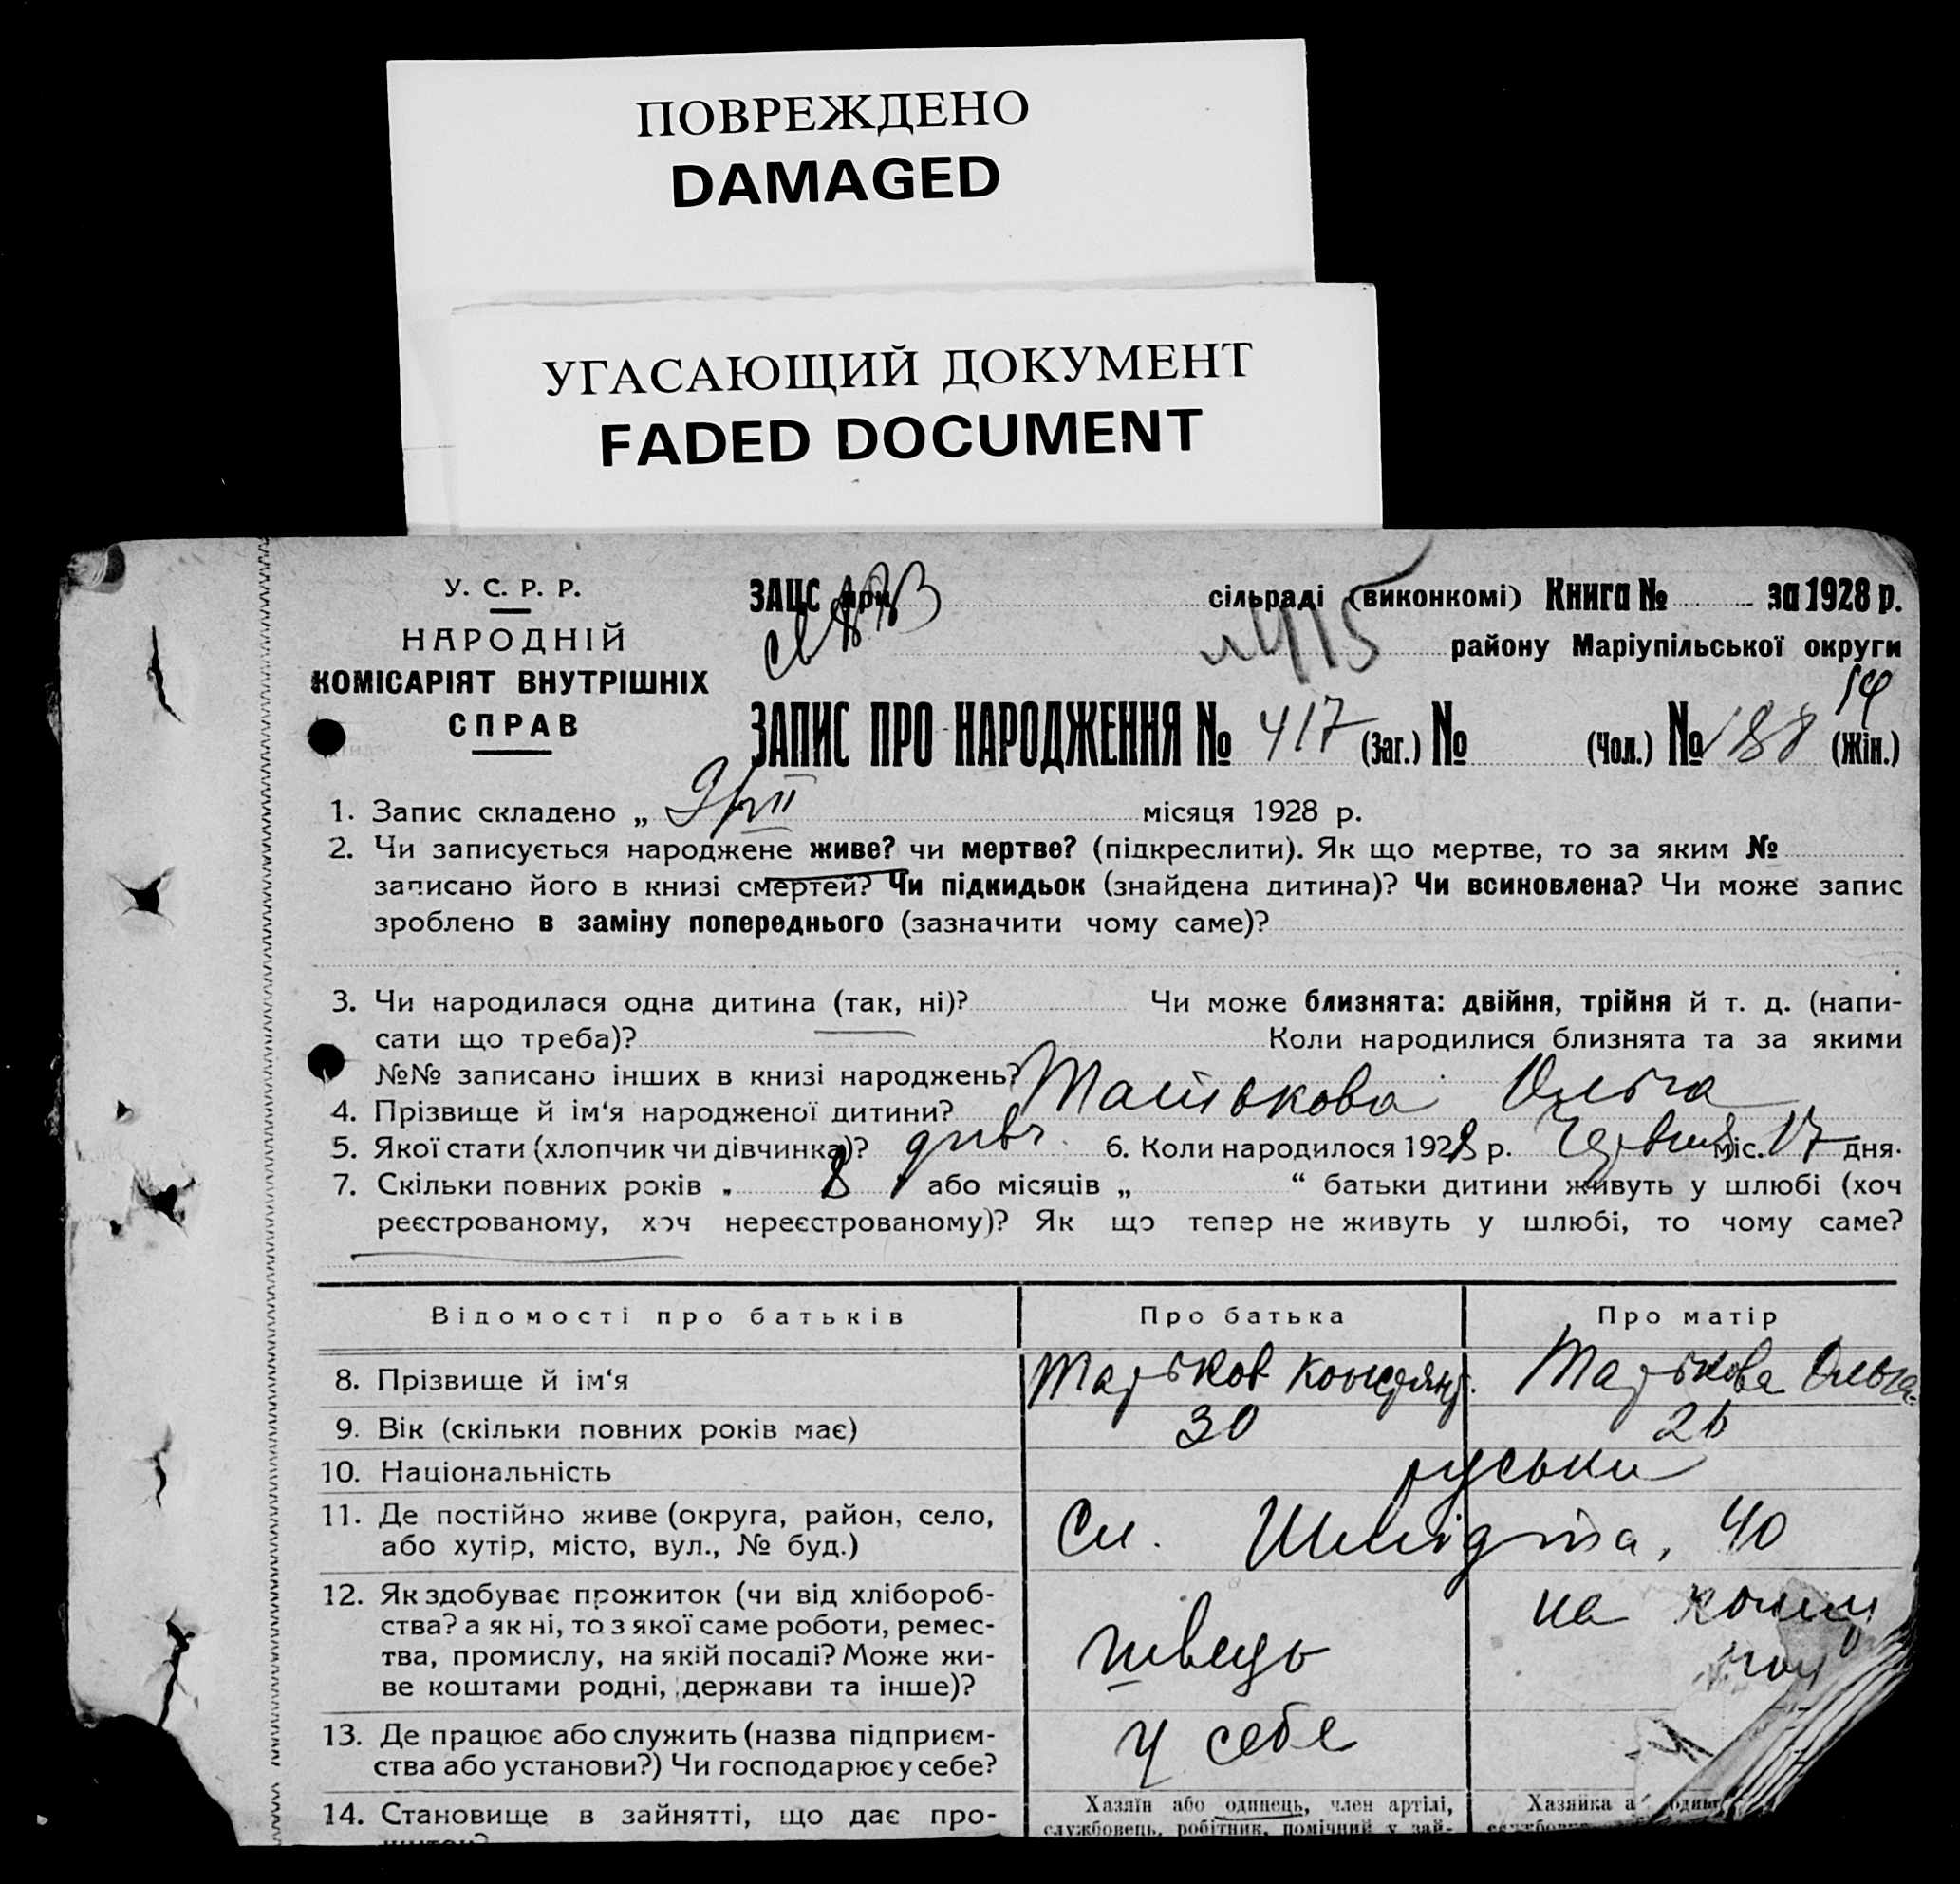 ПОВРЕЖДЕНО
DAMAGED
УГАСАЮЩИЙ ДОКУМЕНТ
FADED DOCUMENT
У. С. Р. Р.
НАРОДНІЙ
КОМІСАРІЯТ ВНУТРІШНІХ
СПРАВ
ЗАЦС при сільраді (виконкомі) Книга № за 1928 р.
415 району Маріупільської округи
ЗАПИС ПРО НАРОДЖЕННЯ № 417 (Заг.) № (Чол.) № 188 (Жін.)
1. Запис складено „ місяця 1928 р.
2. Чи записується народжене живе? чи мертве? (підкреслити). Як що мертве, то за яким №
записано його в книзі смертей? Чи підкидьок (знайдена дитина)? Чи всиновлена? Чи може запис
зроблено в заміну попереднього (зазначити чому саме)?
3. Чи народилася одна дитина (так, ні)? Чи може близнята: двійня, трійня й т. д. (напи-
сати що треба)? Коли народилися близнята та за якими
№№ записано інших в книзі народжень?
4. Прізвище й ім‘я народженої дитини? Ольга
5. Якої стати (хлопчик чи дівчинка)? дивч. 6. Коли народилося 1928 р. Червня міс. 17 дня.
7. Скільки повних років „ 8 або місяців „ “ батьки дитини живуть у шлюбі (хоч
реєстрованому, хоч нереєстрованому)? Як що тепер не живуть у шлюбі, то чому саме?
Відомості про батьків Про батька Про матір
8. Прізвище й ім‘я Ольга
9. Вік (скільки повних років має) 30 26
10. Національність руськи
11. Де постійно живе (округа, район, село,
або хутір, місто, вул., № буд.) Шмідта, 40
12. Як здобуває прожиток (чи від хлібороб-
ства? а як ні, то з якої саме роботи, ремес-
тва, промислу, на якій посаді? Може жи-
ве коштами родні, держави та інше)? швець на
13. Де працює або служить (назва підприєм-
ства або установи?) Чи господарює у себе? у себе
14. Становище в зайнятті, що дає про-
Хазяїн або одинець, член артілі,
службовець, робітник, помічний у зай-
Хазяйка